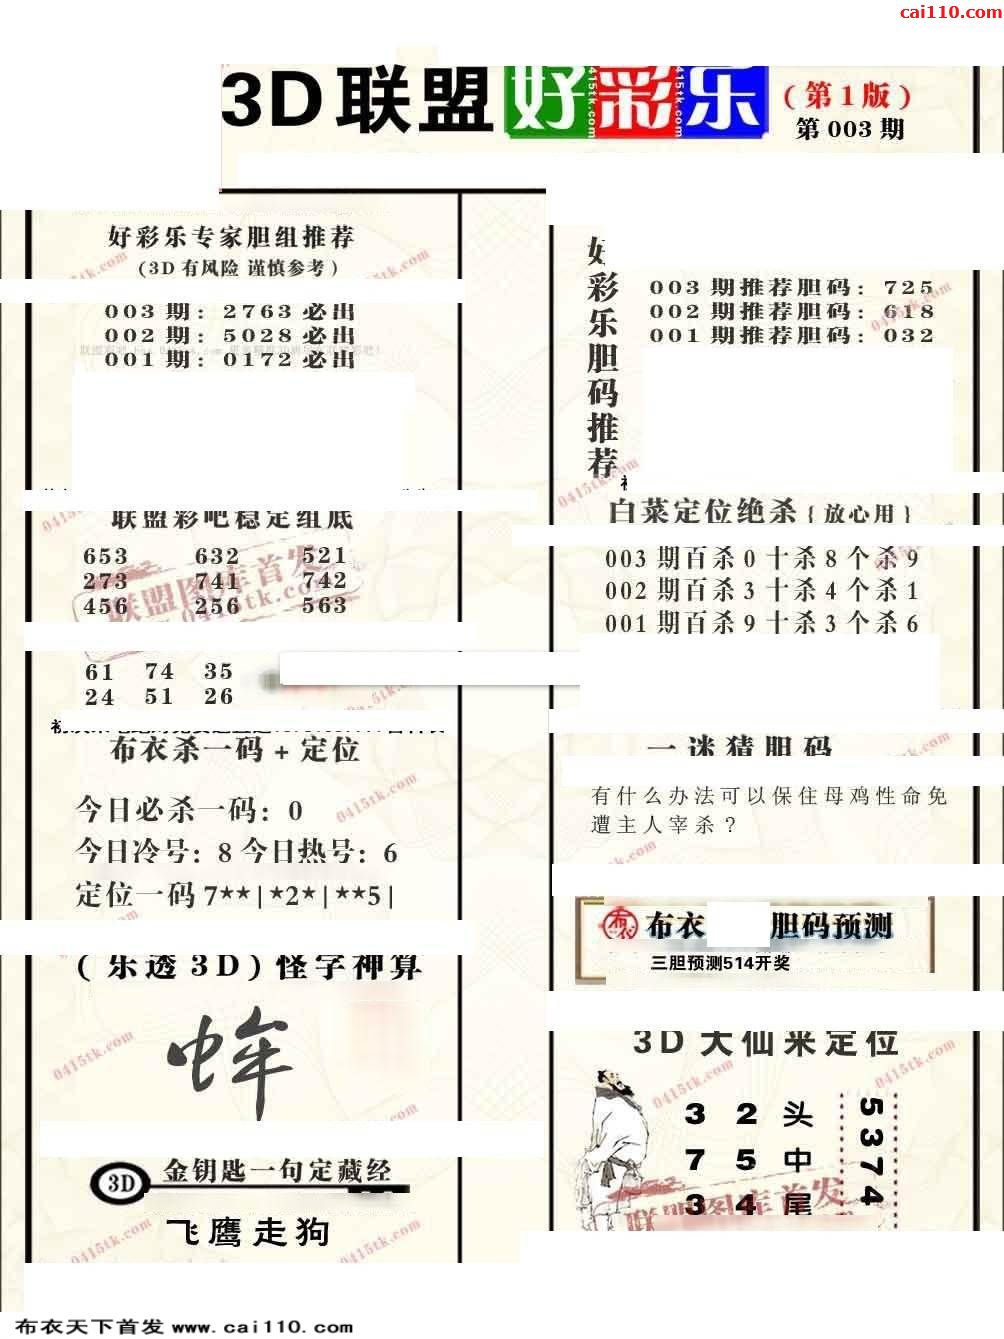 cai110.com
3D联盟好彩乐
(第1版)
第003期
好彩乐专家胆组推荐
(3D有风险 谨慎参考)
003期: 2763必出
002期: 5028必出
001期: 0172必出
好彩乐胆码推荐
003期推荐胆码: 725
002期推荐胆码: 618
001期推荐胆码: 032
联盟彩吧稳定组底
653 632 521
273 741 742
456 256 563
61 74 35
24 51 26
白菜定位绝杀{放心用}
003期百杀0十杀8个杀9
002期百杀3十杀4个杀1
001期百杀9十杀3个杀6
布衣杀一码+定位
今日必杀一码: 0
今日冷号: 8今日热号: 6
定位一码7**|*2*|**5|
一迷猜胆码
有什么办法可以保住母鸡性命免
遭主人宰杀?
布衣 胆码预测
三胆预测514开奖
(乐透3D)怪字神算
蛑
3D大仙来定位
3 2 头
7 5 中
3 4 尾
5374
3D 金钥匙一句定藏经
飞鹰走狗
联盟图库首发
0415tk.com
布衣天下首发 www.cai110.com